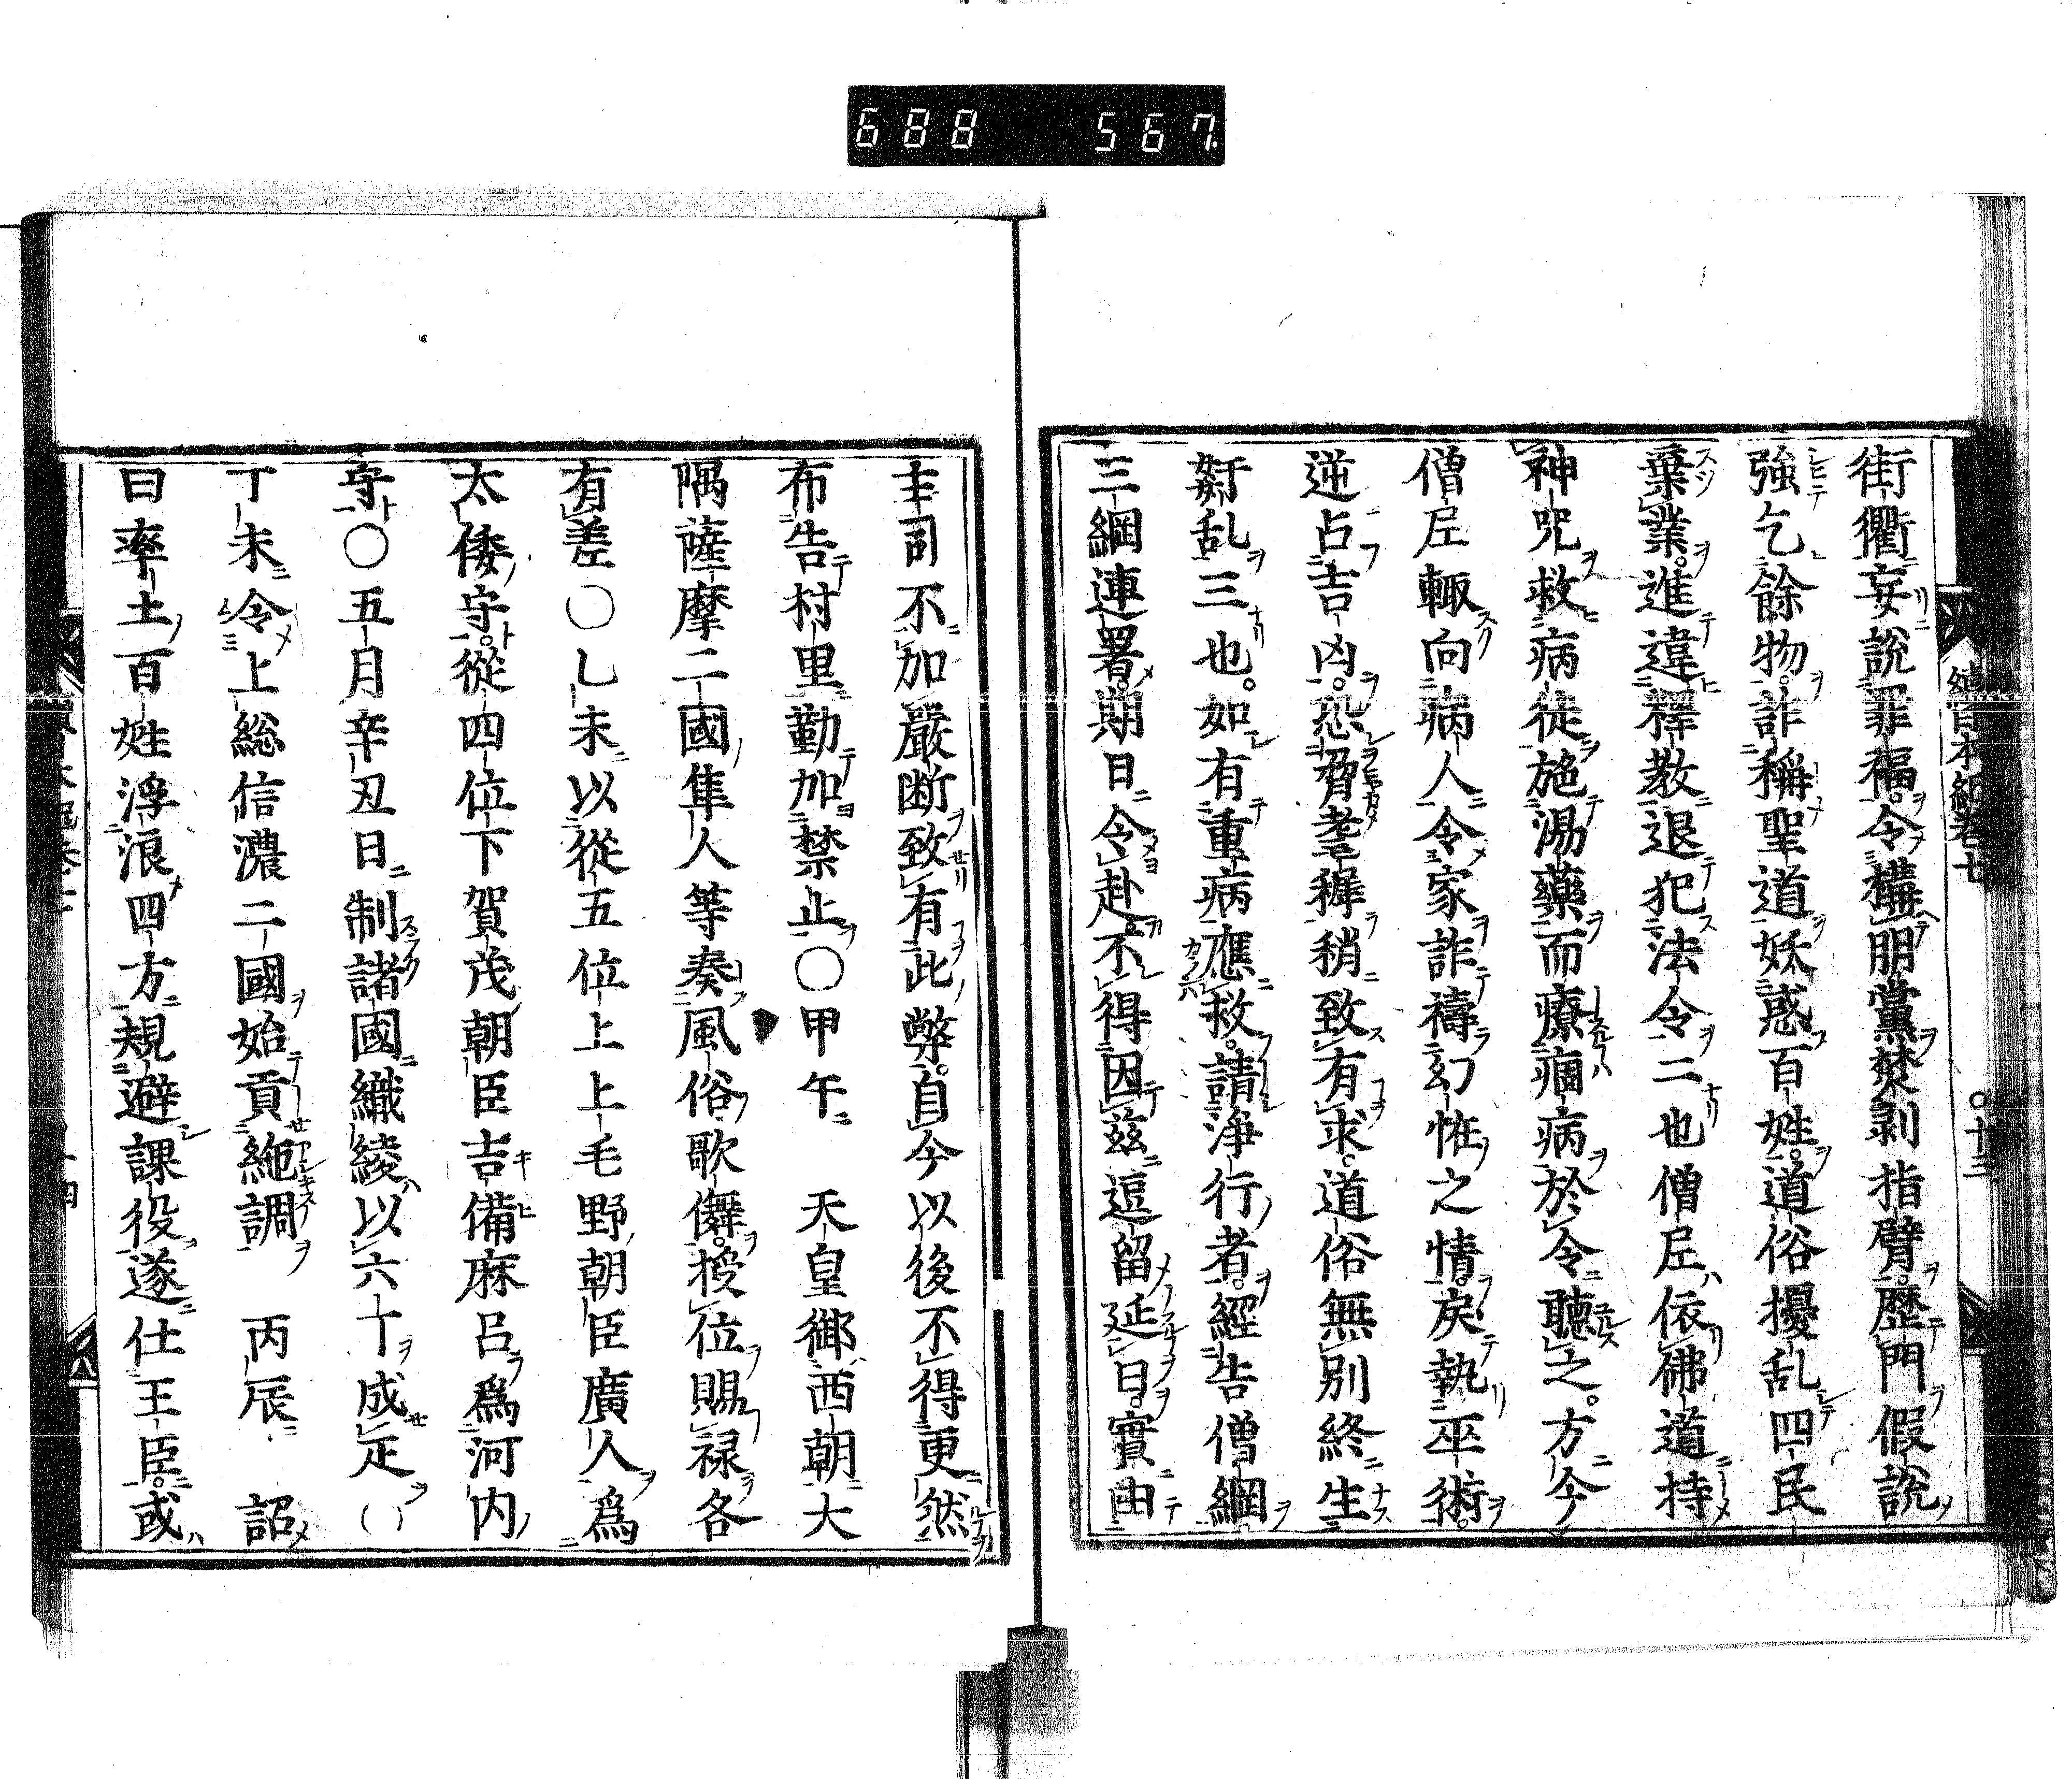 688 567
街衢妄說罪福令構朋黨焚剥指臂歴門假說
強乞餘物詐稱聖道妖惑百姓道俗擾乱四民
棄業進違釋教退犯法令二也僧尼依佛道持
神咒救病徒施湯藥而療痼病於令聽之方今
僧尼輙向病人令家詐禱幻恠之情戾執巫術
逆占吉凶恐脅耄穉稍致有求道俗無別終生
姧乱三也如有重病應救請淨行者經告僧綱
三綱連署期日令赴不得因茲逗留延日實由
主司不加嚴断致有此弊自今以後不得更然
布告村里勤加禁止〇甲午 天皇御西朝大
隅薩摩二國隼人等奏風俗歌儛授位賜禄各
有差〇乚未以從五位上上毛野朝臣廣人爲
太倭守從四位下賀茂朝臣吉備麻呂爲河内
守〇五月辛丑日制諸國織綾以六十成疋〇
丁未令上総信濃二國始貢絁調 丙辰 詔
曰率土百姓浮浪四方規避課役遂仕王臣或